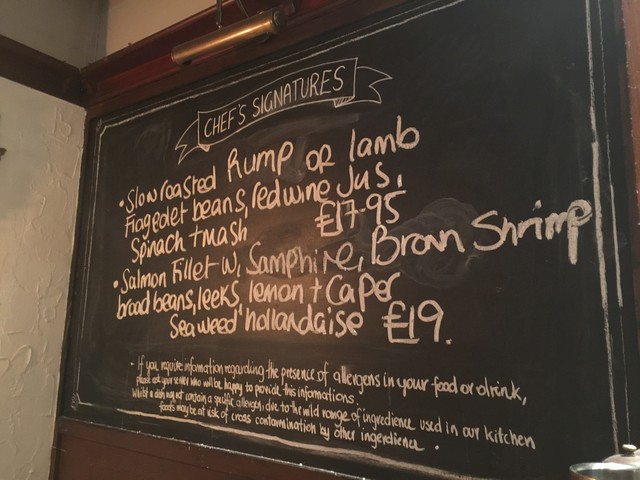 CHEF'S SIGNATURES
• Slow roasted Rump OR lamb
Flageolet beans, redwine Jus,
Spinach + mash £17.95
• Salmon Fillet W, Samphire, Brown Shrimp
broad beans, leeks, lemon + Caper
Seaweed hollandaise £19.
• If you require information regarding the presence of allergens in your food or drink,
please ask your server who will be happy to provide this informations.
Whilst a dish may not contain a specific allergen, due to the wild range of ingredience used in our kitchen
foods may be at risk of cross contamination by other ingerdience.